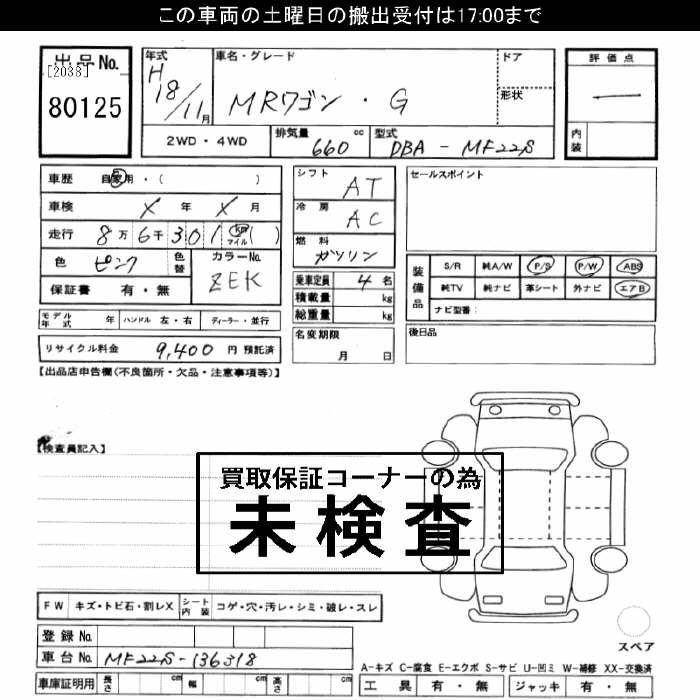 この車両の土曜日の搬出受付は17:00まで
出品No.
[2038]
80125
年式 H18/11月
車名・グレード
MRワゴン・G
ドア
形状
評価点
—
内装
2WD・4WD
排気量 660 cc
型式 DBA-MF22S
車歴 自家用・( )
車検 X年 X月
走行 8万6千301 km マイル( )
色 ピンク
色替
カラーNo. ZEK
保証書 有・無
モデル年式 年 ハンドル 左・右 ディーラー・並行
リサイクル料金 9,400 円 預託済
シフト AT
冷房 AC
燃料 ガソリン
乗車定員 4名
積載量 kg
総重量 kg
名変期限
月 日
セールスポイント
装備品
S/R 純A/W P/S P/W ABS
純TV 純ナビ 革シート 外ナビ エアB
ナビ型番:
後日品
【出品店申告欄(不良箇所・欠品・注意事項等)】
【検査員記入】
買取保証コーナーの為
未検査
FW キズ・トビ石・割レX シート内装 コゲ・穴・汚レ・シミ・破レ・スレ
登録No.
車台No. MF22S-136318
車庫証明用 長さ cm 幅 cm 高さ cm
スペア
A-キズ C-腐食 E-エクボ S-サビ U-凹ミ W-補修 XX-交換済
工具 有・無 ジャッキ 有・無